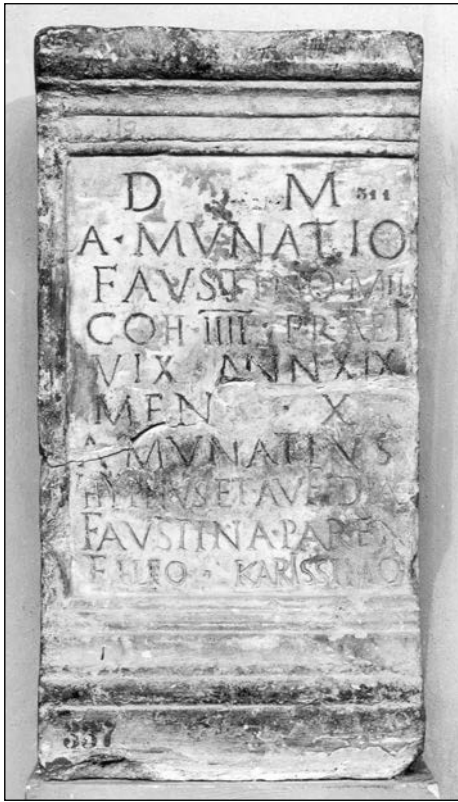 D M
A · MVNATIO
FAVSTINO MIL
COH IIII PRAET
VIX ANN XIX
MEN X
A MVNATIVS
ET AVFIDIA
FAVSTINA · PAREN
FILIO · KARISSIMO
337